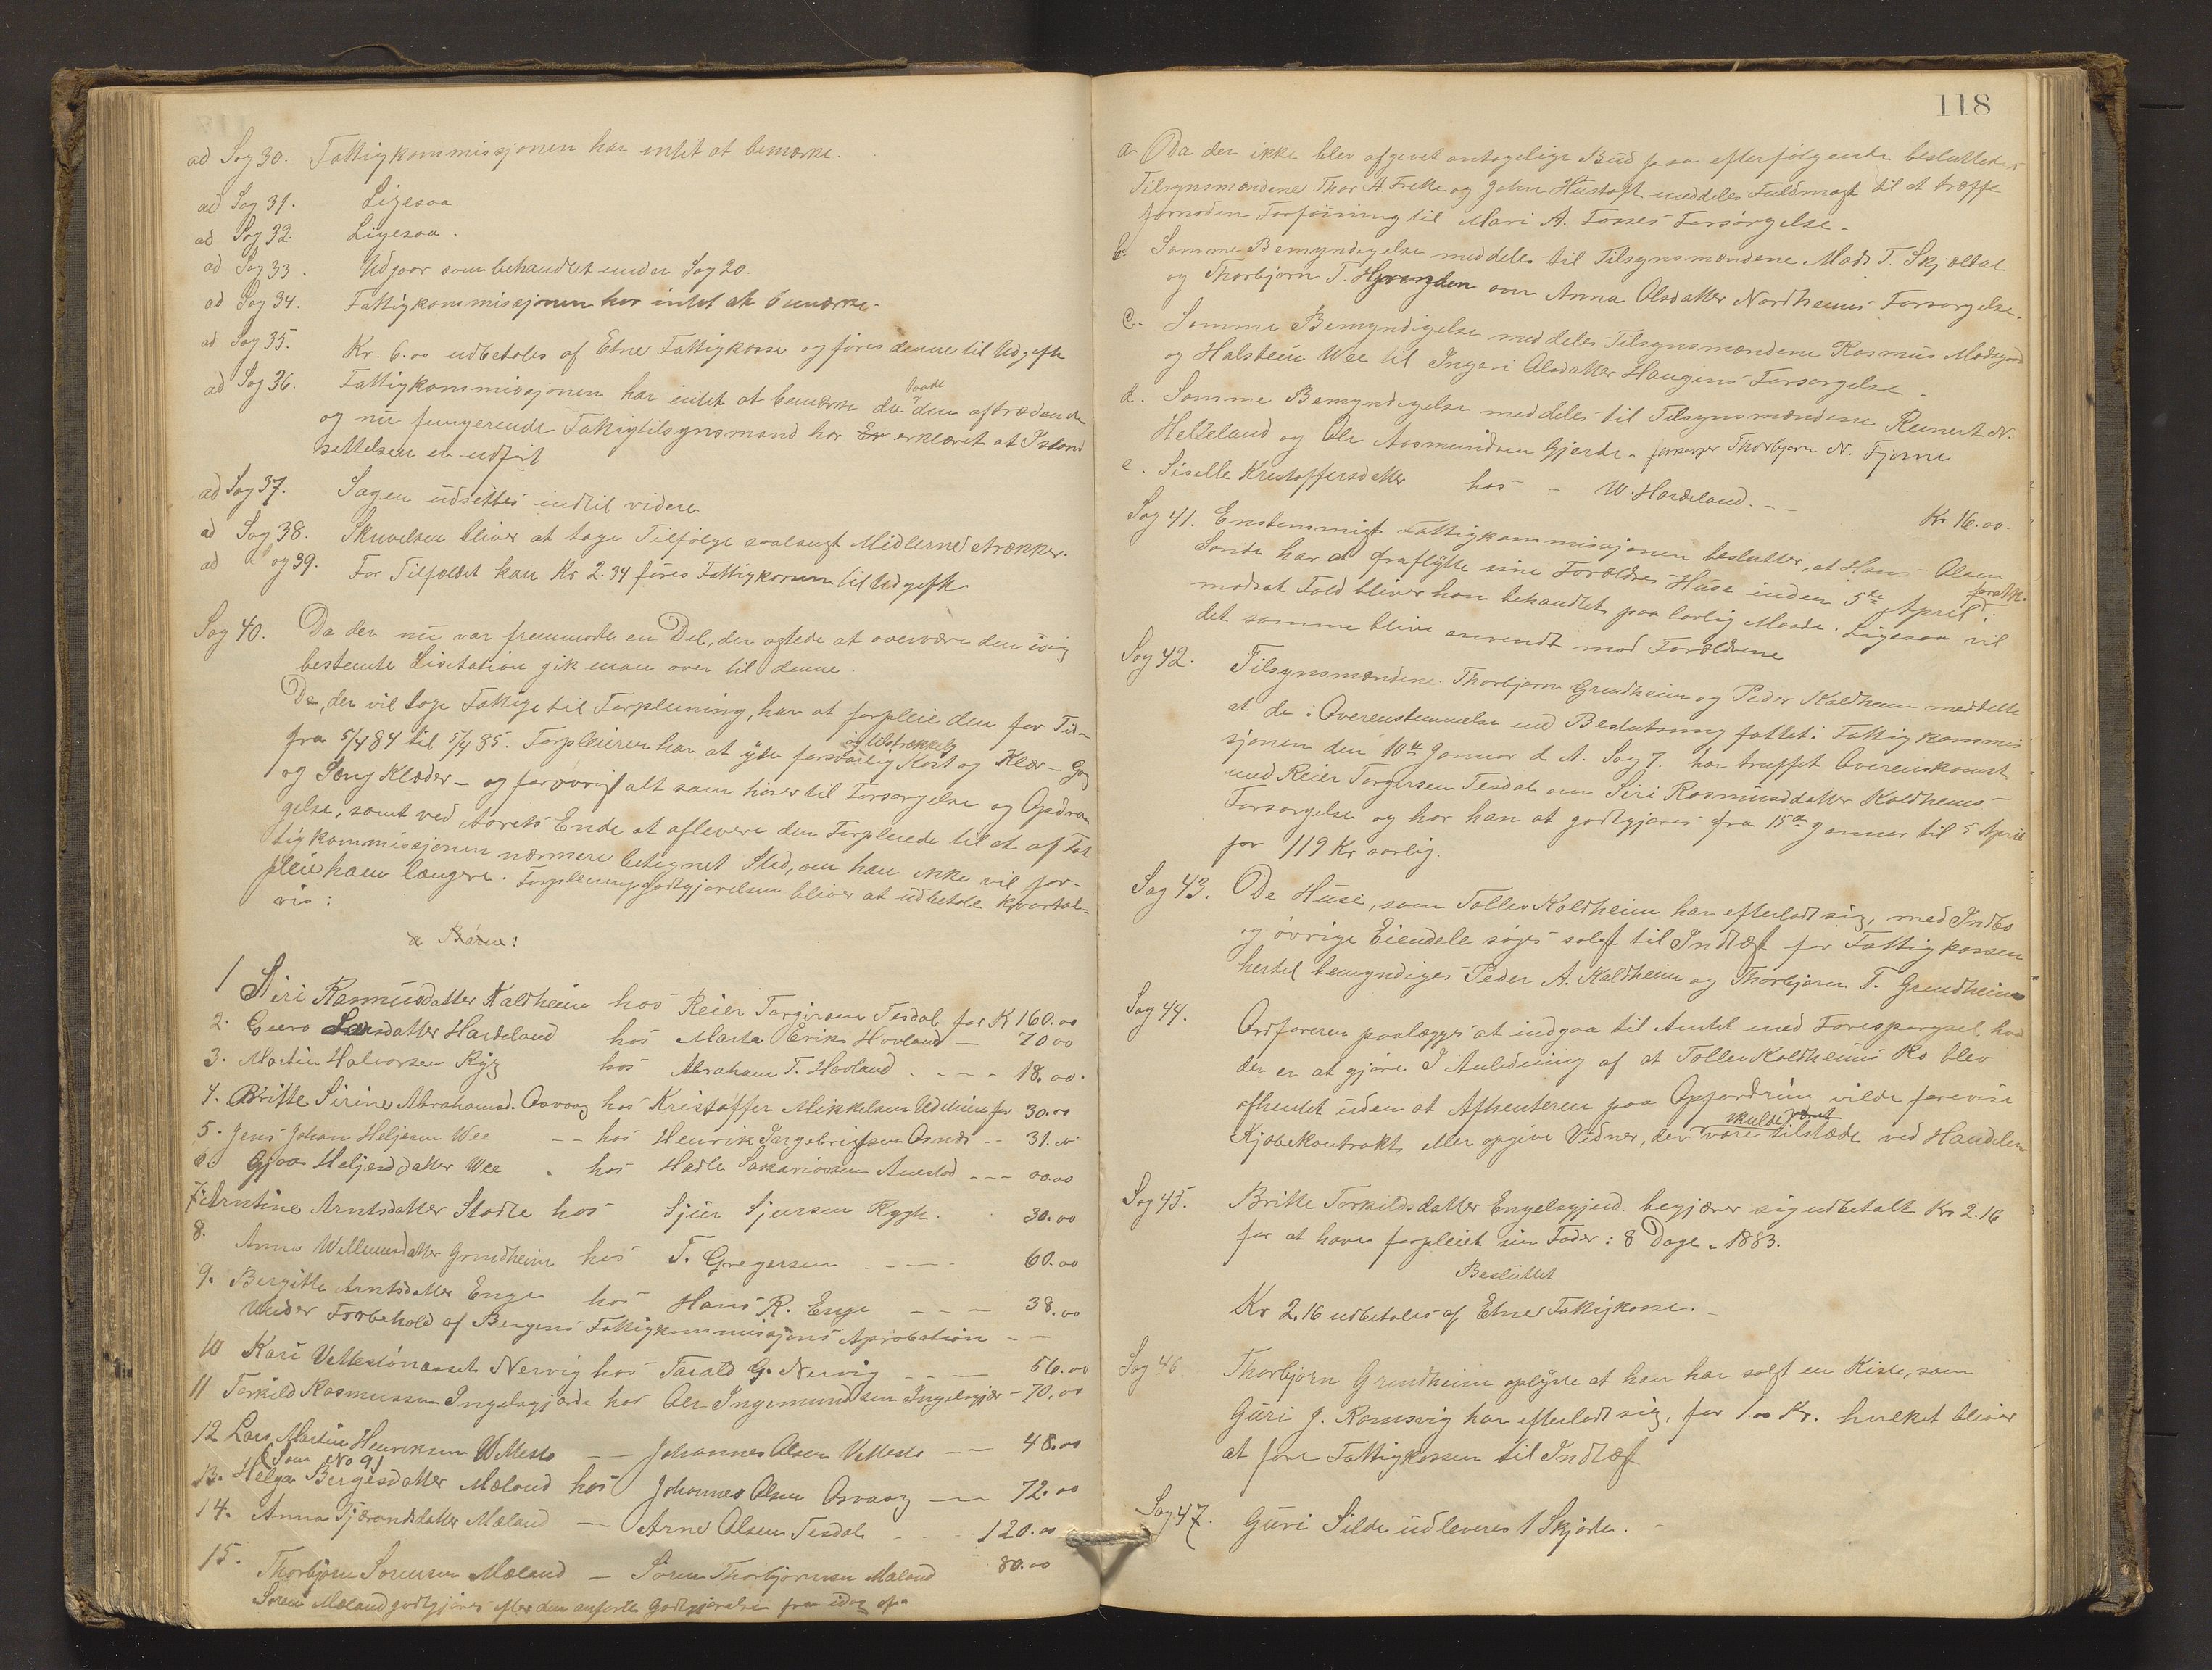 ad Sag 30. Fattigkommissjonen har intet at bemærke.
ad Sag 31. Ligesaa
ad Sag 32. Ligesaa.
ad Sag 33. Udgaar som behandlet under Sag 20.
ad Sag 34. Fattigkommissjonen har intet at bemærke.
ad Sag 35. Kr. 6.00 udbetales af Etne Fattigkasse og føres denne til Udgift
ad Sag 36. Fattigkommissjonen har intet at bemærke da baade den aftrædende
og nu fungerende Fattigtilsynsmand har Er erklæret at Istand
sættelsen er udført
ad Sag 37. Sagen udsættes indtil videre
ad Sag 38. Skrivelsen bliver at tage Tilfølge saalangt Midlerne strækker.
ad Sag 39. For Tilfældet kan Kr 2.34 føres Fattigkassen til Udgift
Sag 40. Da der nu var fremmødt en Del, der agtede at overvære den idag
bestemte Lisitation gik man over til denne.
De, der vil tage Fattige til Forpleining, har at forpleie den for Tid-
fra 5/4 84 til 5/4 85. Forpleieren har at yde forsvarlig og tilstrækkelig Kost og Klær - Gang
og Seng Klæder - og forøvrigt alt som hører til Forsørgelse og Opdra
gelse, samt ved Aarets Ende at aflevere den Forpleiede til et af Fat
tigkommissjonen nærmere betegnet Sted, om han ikke vil for-
pleie ham længere. Forpleiningsgodtgjørelsen bliver at udbetale kvartal-
vis:
a Børn:
1 Siri Rasmusdatter Kaldheim hos Reier Torgersen Tesdal for Kr 160.00
2. Guro Larsdatter Hardeland hos Marta Eriks Hovland - 70.00
3. Martin Halvorsen Rygg hos Abraham T. Hovland - - - 18.00.
4. Britte Sirine Abrahamsd. Osvaag hos Kristoffer Mikkelsen for 30.00
5. Jens Johan Heljesen Wee - - hos Henrik Ingebrigtsen Osnes - - 31.00
6. Gjoa Heljesdatter Wee hos Hadle Sakariassen - - - 00.00
7. Arntine Arntsdatter Stødle hos Sjur Sjursen Rygh. 30.00
8. Anna Willumsdatter Grindheim hos T. Gregersen - - - 60.00
9. Bergitte Arntsdatter Enge hos Hans R. Enge - - - 38.00
Under Forbehold af Bergens Fattigkommissjons Aprobation - -
10 Kari Nervig hos Tarald G. Nervig - - - 56.00
11 Torkild Rasmussen Ingelsgjerde hos Ole Ingemundsen Ingelsgjer - 70.00
12 Lars Martin Henriksen Vittesto - - Johannes Olsen Vettesto - - 48.00
(Som No 9)
13. Helga Børgesdatter Mæland hos Johannes Olsen Osvaag - - 72.00
14. Anna Tjærandsdatter Mæland - Arne Olsen Tesdal - - - 120.00
15. Thorbjørn Sørensen Mæland - Søren Thorbjørnsen Mæland 80.00
Søren Mæland godtgjøres efter den anførte Godtgjørelse fra idag af
118
a Da der ikke blev afgivet antagelige Bud paa efterfølgende besluttedes
Tilsynsmændene Thor A. Frette og John Hustoft meddeles Fuldmagt til at træffe
fornøden Forføining til Mari A. Fosses Forsørgelse.
b. Samme Bemyndigelse meddeles til Tilsynsmændene Mads T. Skjældal
og Thorbjørn T. om Anna Olsdatter Nordheims Forsørgelse.
c. Samme Bemyndigelse meddeles Tilsynsmændene Rasmus
og Halstein Wee til Ingeri Olsdatter Haugens Forsørgelse.
d. Samme Bemyndigelse meddeles til Tilsynsmændene Reinert N.
Helleland og Ole Aasmundsen Gjerde forsørger Thorbjørn N. Fjørne
e. Siselle Kristoffersdatter hos - W. Hardeland. - - Kr 16.00.
Sag 41. Enstemmigt Fattigkommissjonen beslutter, at Hans Olsen
Sande har at fraflytte sine Forældres Huse inden 5te April,
modsat Fald bliver han behandlet paa lovlig Maade. Ligesaa vil
det samme blive anvendt mod Forældrene
Sag 42. Tilsynsmændene Thorbjørn Grindheim og Peder Kaldheim meddelte
at de i Overensstemmelse med Beslutning fattet i Fattigkommis
sjonen den 10de Januar d. A. Sag 7. har truffet Overenskomst
med Reier Torgersen Tesdal om Siri Rasmusdatter Kaldheims
Forsørgelse og har han at godtgjøres fra 15de Januar til 5 April
for 119 Kr aarlig.
Sag 43. De Huse, som Tollev Kaldheim har efterladt sig, med Indbo
og øvrige Eiendele søges solgt til Indtægt for Fattigkassen
hertil bemyndiges Peder A. Kaldheim og Thorbjørn T. Grindheim
Sag 44. Ordføreren paalægges at indgaa til Amtet med Forespørgsel, hvad
der er at gjøre I Anledning af at Tollev Kaldheims Ko blev
afhentet uden at Afhenteren paa Opfordrin vilde forevise
Kjøbekontrakt eller opgive Vidner, der skulde været være tilstæde ved Handelen
Sag 45. Britte Torkildsdatter Engelsgjerd begjærer sig udbetalt Kr 2.16
for at have forpleiet sin Fader i 8 Dage - 1883.
Besluttet
Kr 2.16 udbetales af Etne Fattigkasse. -
Sag 46. Thorbjørn Grindheim oplyste at han har solgt en Kiste, som
Guri J. Ramsvig har efterladt sig, for 1.00 Kr. hvilket bliver
at føre Fattigkassen til Indtægt
Sag 47. Guri Silde udleveres 1 Skjorte. -